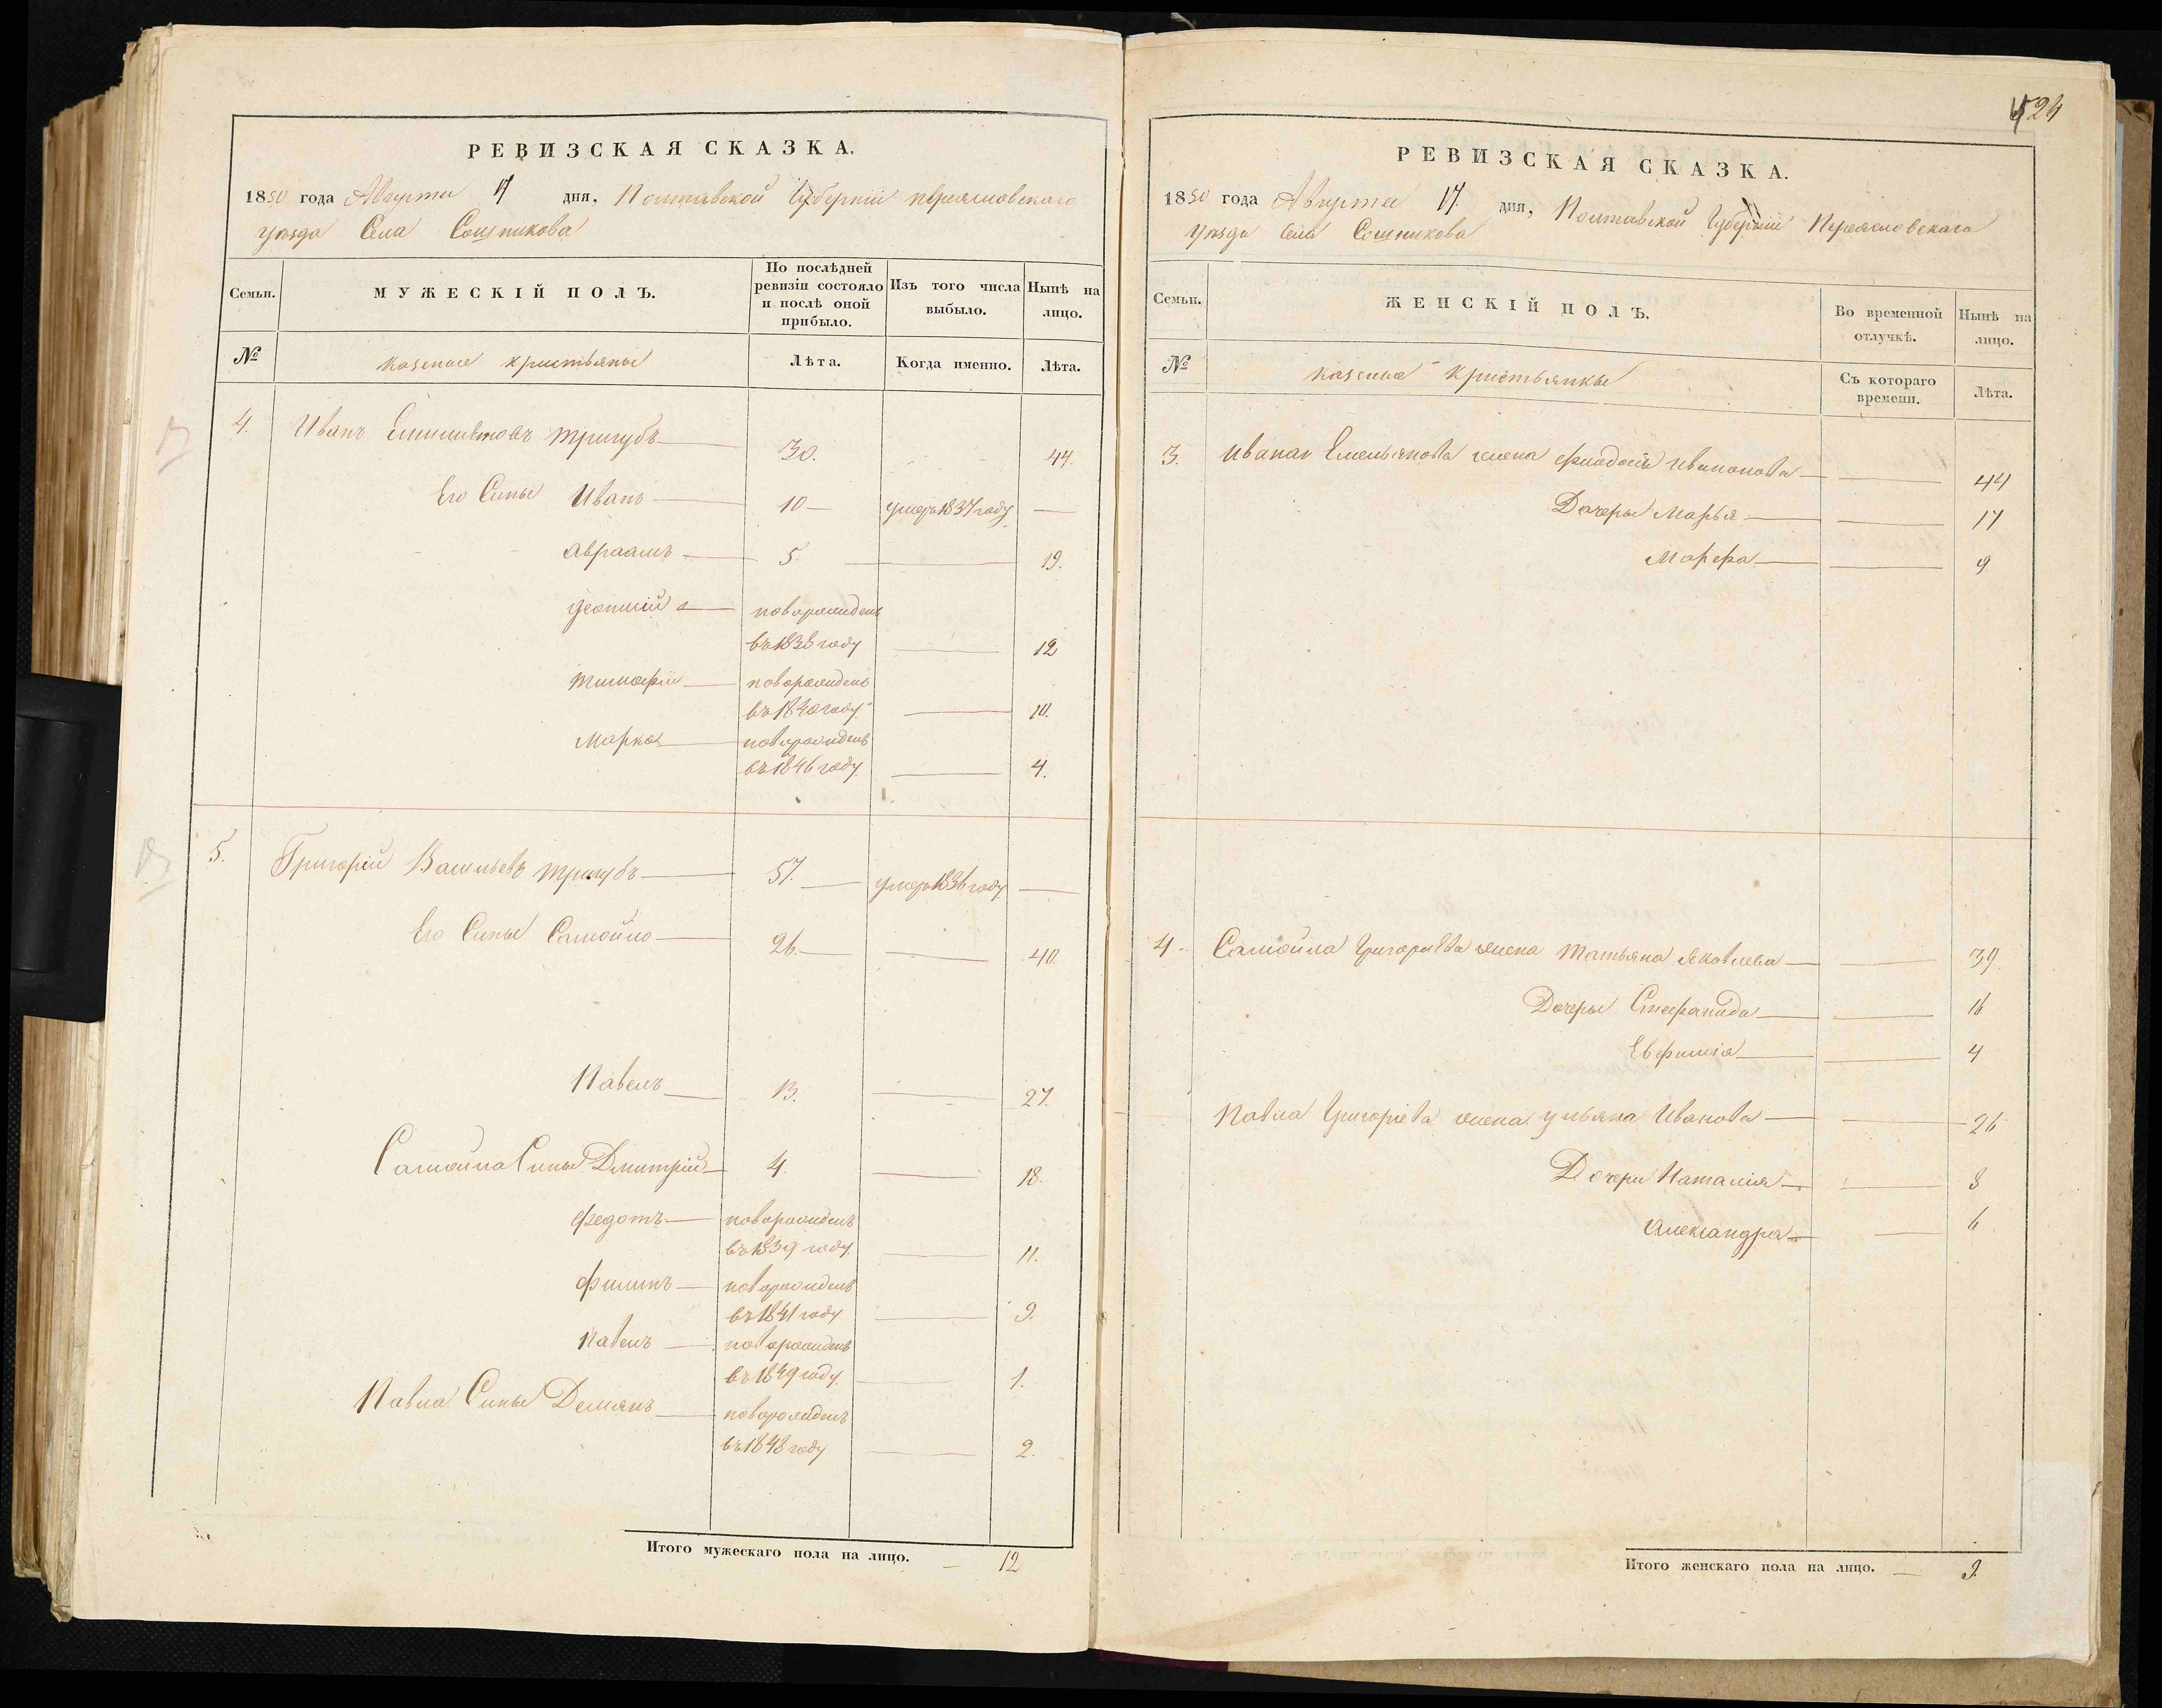 РЕВИЗСКАЯ СКАЗКА.
1850 года Августа 17 дня, Полтавской Губернiи переясловскаго
уезда Села Сошникова
Семьи.
МУЖЕСКIЙ ПОЛЪ.
По послѣдней ревизiи состояло и послѣ оной прибыло.
Изъ того числа выбыло.
Нынѣ на лицо.
№ казеные кристьяны Лѣта. Когда именно. Лѣта.
4. Иванъ Емишановъ тригубъ 30. 44.
Его Сины Иванъ 10 умеръ 1837 году
Авраамъ 5. 19.
новорожденъ
въ 1838 году 12
тимофiи новорожденъ
въ 1840 году 10.
Марко новорожденъ
въ 1846 году 4.
5. Григорiй Васильевъ тригубъ 57. умеръ 1836 году
Его Сины Самойло 26. 40.
Павелъ 13. 27.
Самойла Сины Дмитрiй 4. 18.
Федотъ новорожденъ
въ 1839 году 11.
Филипъ новорожденъ
въ 1841 году 9.
Павелъ новорожденъ
въ 1849 году. 1.
Павла Сины Демянъ новорожденъ
въ 1848 году 2.
Итого мужескаго пола на лицо. 12
524
РЕВИЗСКАЯ СКАЗКА.
1850 года Августа 17. дня, Полтавской Губернiи Переясловскаго
уезда Села Сошникова
Семьи.
ЖЕНСКIЙ ПОЛЪ.
Во временной отлучкѣ.
Нынѣ на лицо.
№ казеные кристьянкы Съ котораго времени. Лѣта.
3. Ивана Емельянова жена феодосiя 44
Дочеры Марья 17
Марфа 9
4 Самойла Григориева жена татьяна Яковлева 39
Дочеры Стефанида 16
Евфимiя 4
Павла Григорiева жена ульяна Иванова 26
Дочери Наталiя 8
Александра 6
Итого женскаго пола на лицо. 9.